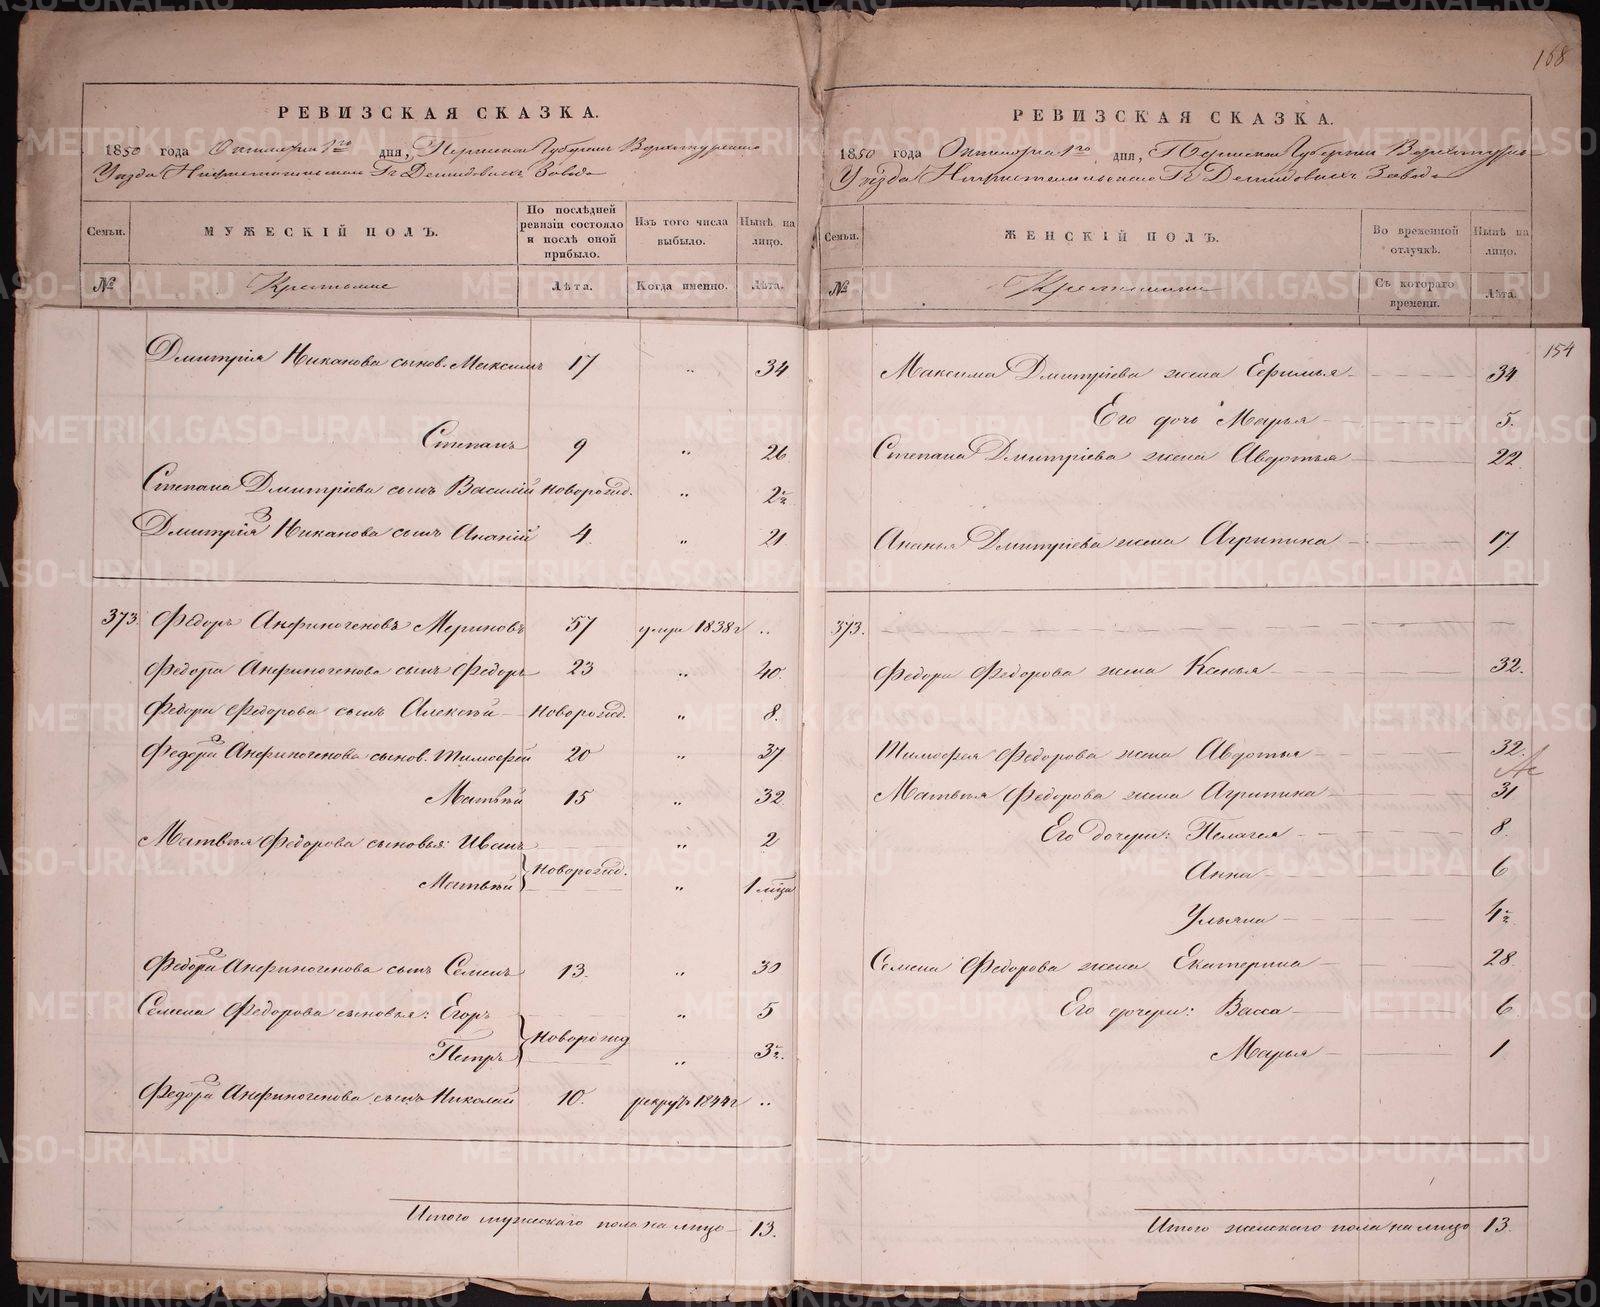 168
РЕВИЗСКАЯ СКАЗКА.
1850 года Октября 1го дня, Пермской Губернии Верхотурскаго
Уѣзда Нижнетагильскаго Гг. Демидовыхъ Завода
Семьи. МУЖЕСКІЙ ПОЛЪ. По послѣдней ревизіи состояло и послѣ оной прибыло. Изъ того числа выбыло. Нынѣ на лицо.
№ Крестьяне Лѣта. Когда именно. Лѣта.
Дмитрія Никанова сынов. Максимъ 17 „ 34
Степанъ 9 „ 26
Степана Дмитріева сынъ Василій новорожд. „ 2½
Дмитрія 3 Никанова сынъ Ананій 4 „ 21
373 Федоръ Анфиногеновъ Мериновъ 57 умре 1838 г „
Федора Анфиногенова сынъ Федоръ 23 „ 40
Федора Федорова сынъ Алексѣй новорожд. „ 8.
Федора 2 Анфиногенова сынов. Тимофей 20 „ 37
Матвѣй 15 „ 32
Матвѣя Федорова сыновья: Иванъ „ 2
новорожд.
Матвѣй „ 1 мѣца
Федора Анфиногенова сынъ Семенъ 13. „ 30
Семена Федорова сыновья: Егоръ „ 5
новорожд
Петръ „ 3½
Федора Анфиногенова сынъ Николай 10. рекрут 1844 г „
Итого мужескаго пола на лицо 13.
РЕВИЗСКАЯ СКАЗКА.
1850 года Октября 1го дня, Пермской Губернии Верхотурска-
Уѣзда Нижнетагильскаго Гг. Демидовыхъ Завода
Семьи. ЖЕНСКІЙ ПОЛЪ. Во временной отлучкѣ. Нынѣ на лицо.
№ Крестьянки Съ котораго времени. Лѣта.
154
Максима Дмитріева жена Ефимья 34
Его дочь Марья 5.
Степана Дмитріева жена Авдотья 22
Ананья Дмитріева жена Агрипина 17.
373.
Федора Федорова жена Ксенья 32.
Тимофея Федорова жена Авдотья 32.
Матвѣя Федорова жена Агрипина 31
Его дочери: Пелагея 8.
Анна 6
Ульяна 4½
Семена Федорова жена Екатерина 28
Его дочери: Васса 6
Марья 1
Итого женскаго пола на лицо 13.
METRIKI.GASO-URAL.RU